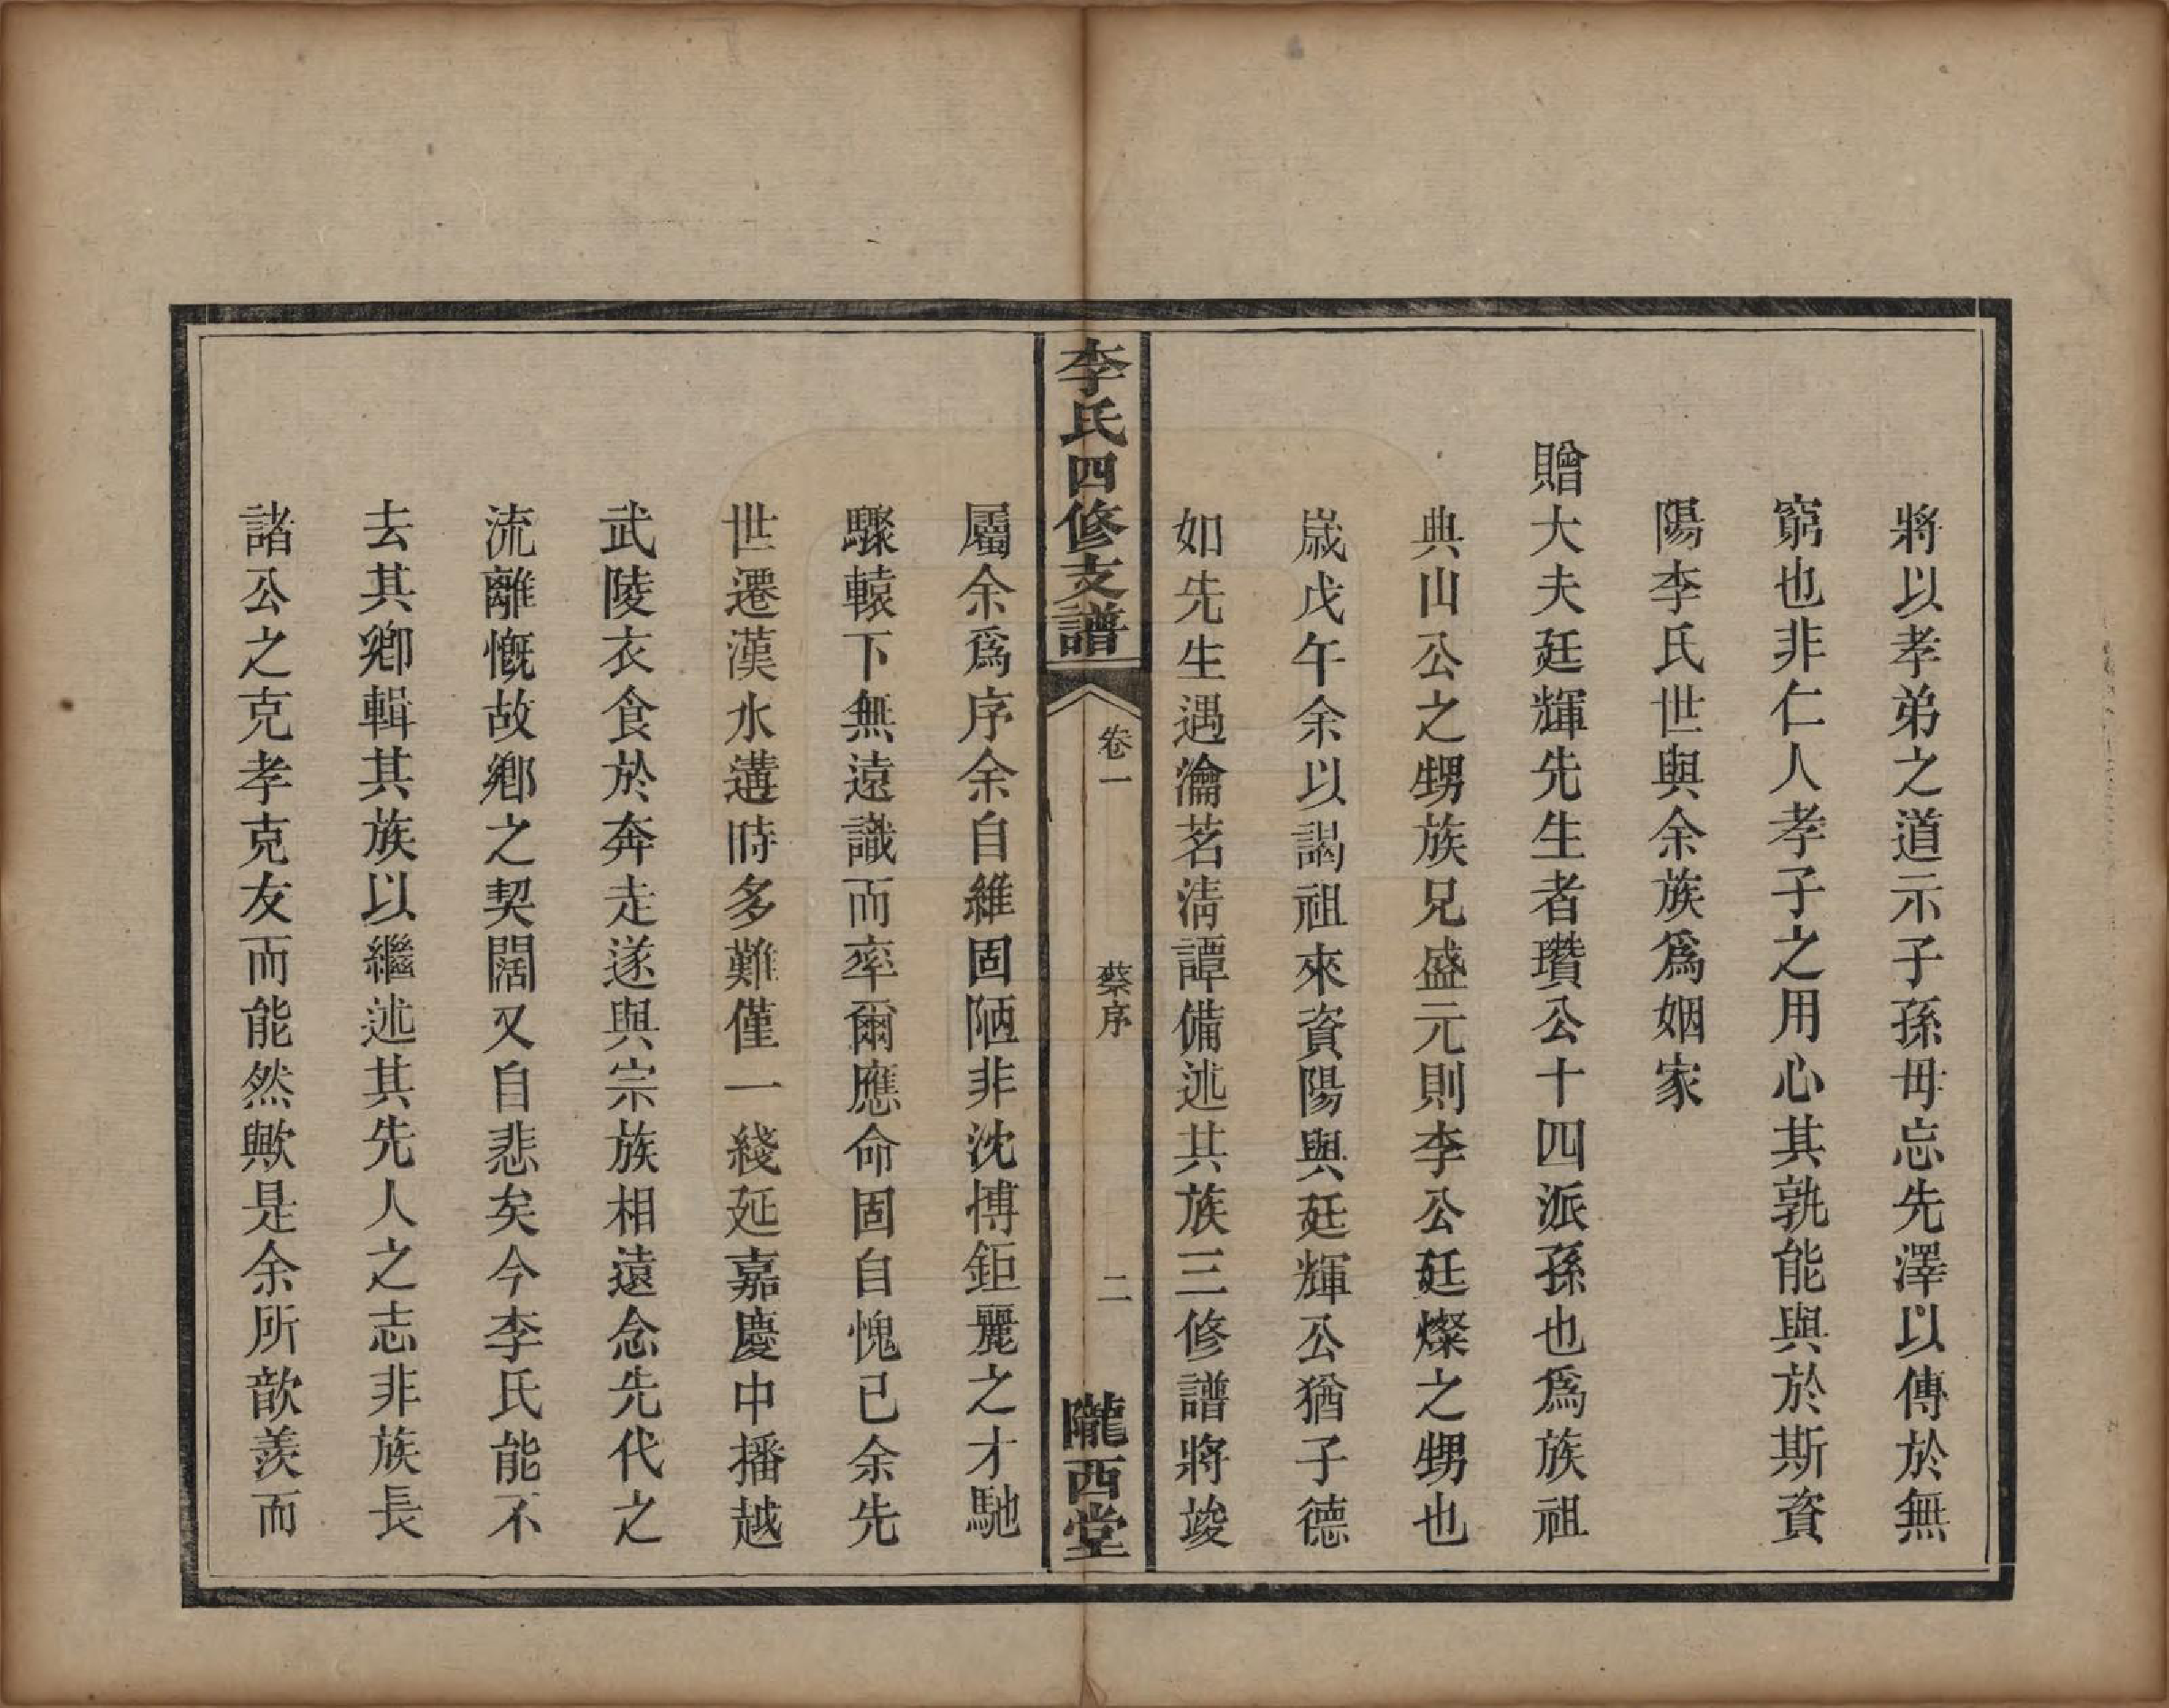 將以孝弟之道示子孫毋忘先澤以傳於無
窮也非仁人孝子之用心其孰能與於斯資
陽李氏世與余族爲姻家
贈大夫廷輝先生者瓚公十四派孫也爲族祖
典山公之甥族兄盛元則李公廷燦之甥也
歲戊午余以謁祖來資陽與廷輝公猶子德
如先生遇瀹茗淸譚備述其族三修譜將竣
李氏四修支譜
卷一
蔡序
二
隴西堂
屬余爲序余自維固陋非沈博鉅麗之才馳
驟轅下無遠識而率爾應命固自愧已余先
世遷漢水遘時多難僅一綫延嘉慶中播越
武陵衣食於奔走遂與宗族相遠念先代之
流離慨故鄉之契闊又自悲矣今李氏能不
去其鄉輯其族以繼述其先人之志非族長
諸公之克孝克友而能然歟是余所歆羨而